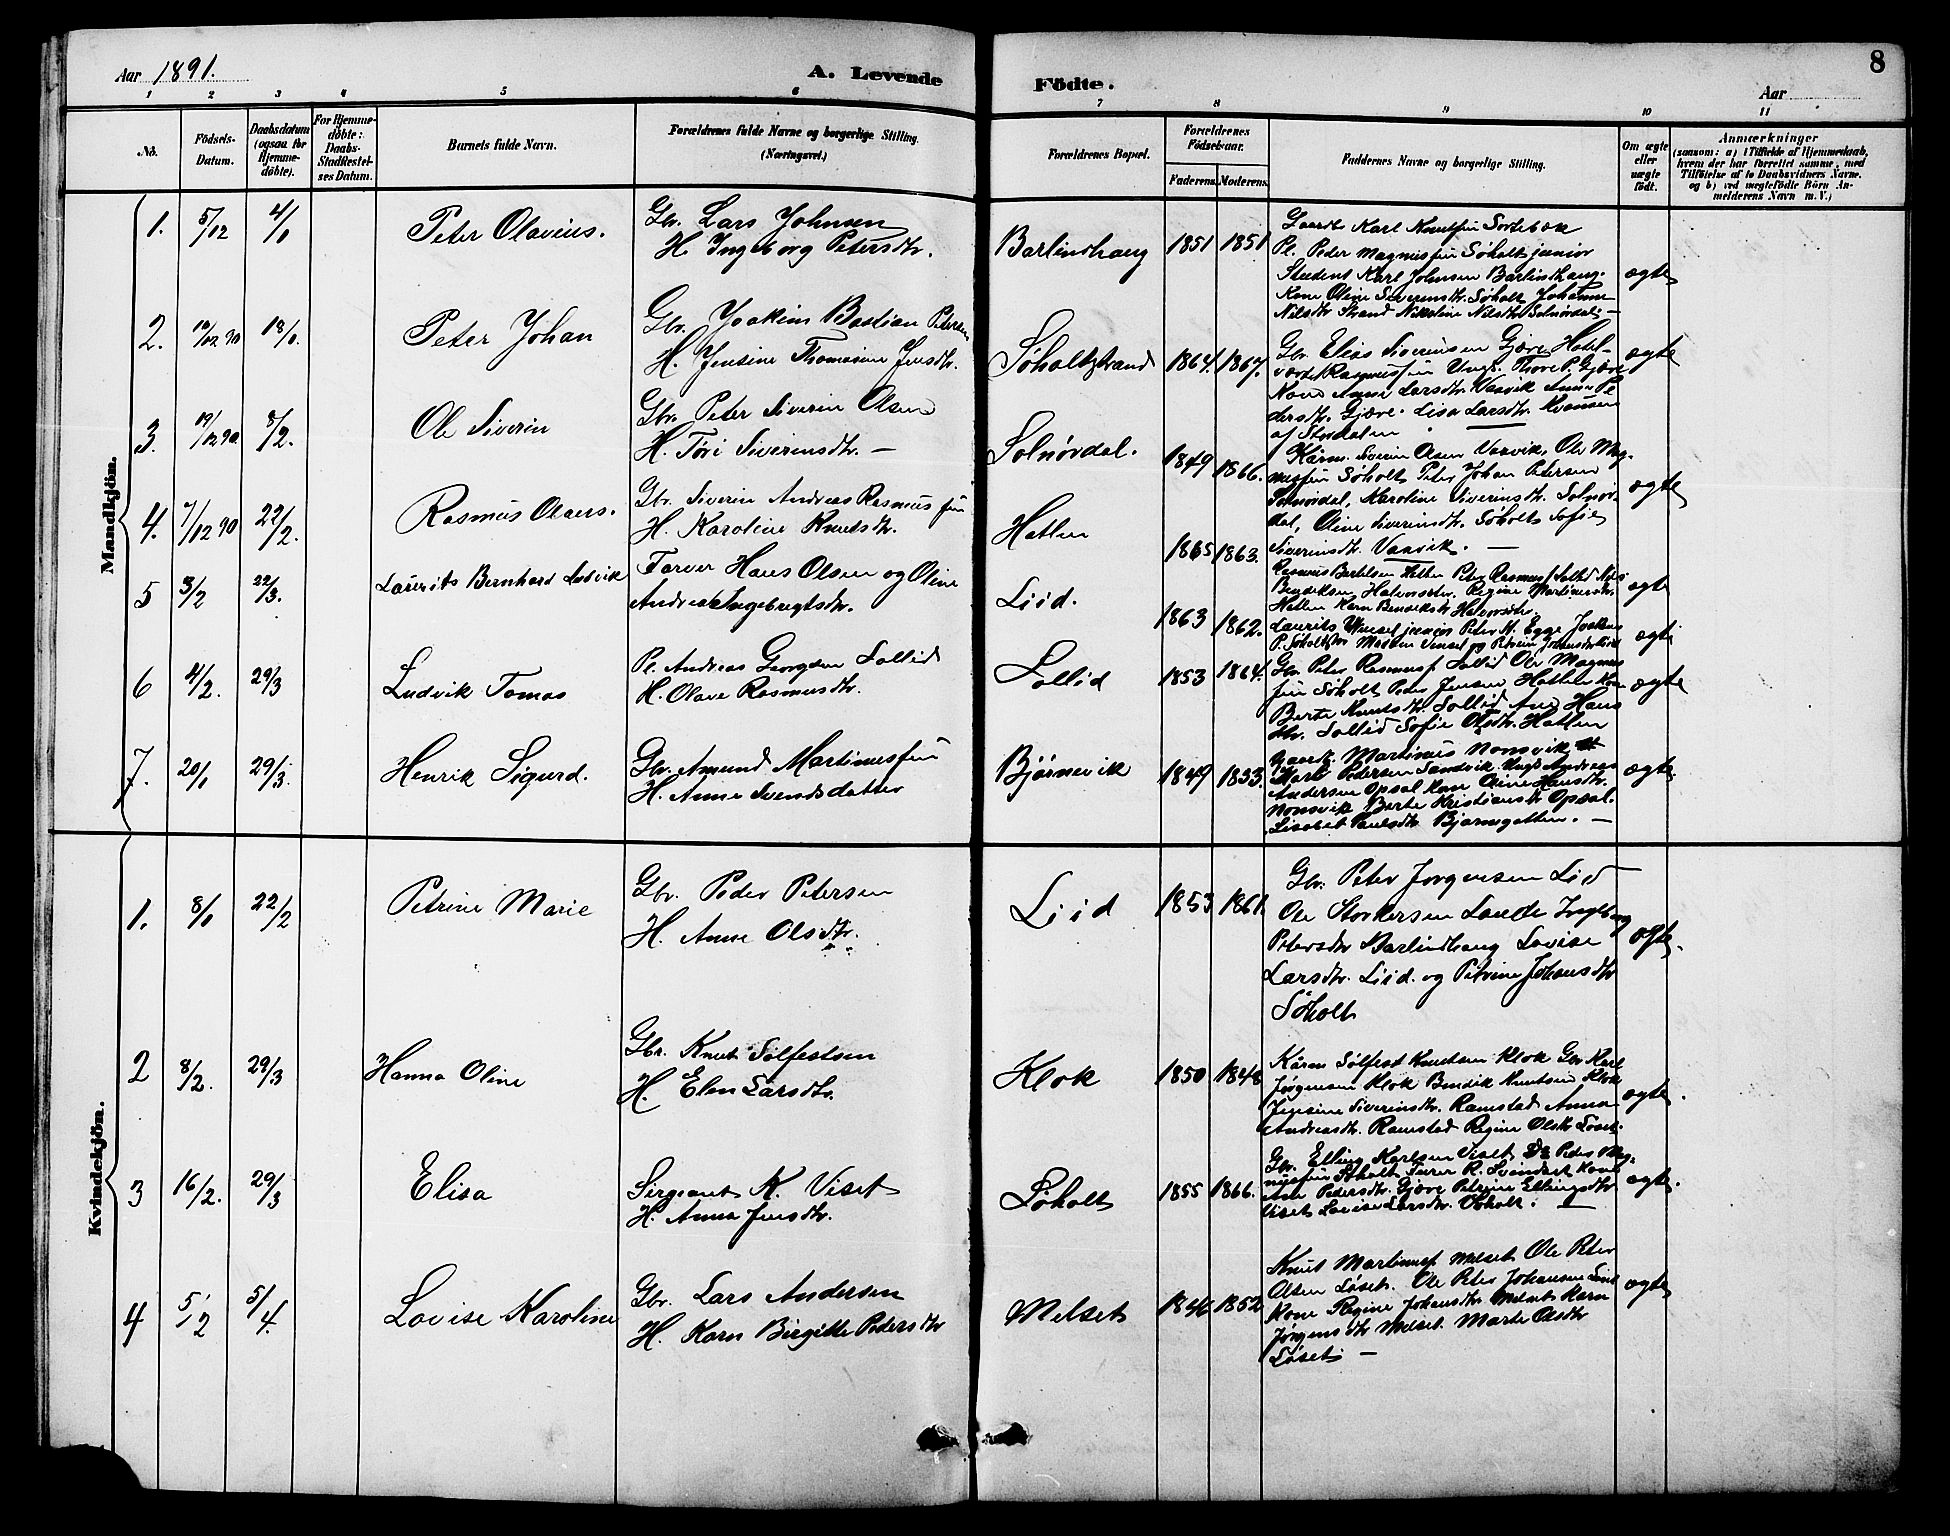 Aar 1891.
A. Levende
Födte.
Aar
8
1 2 3 4 5 6 7 8 9 10 11
No.
Födsels-Datum.
Daabsdatum (ogsaa for Hjemme-döbte).
For Hjemme-döbte: Daabs-Stadfæstel-ses Datum.
Barnets fulde Navn.
Forældrenes fulde Navne og borgerlige Stilling.
(Næringsvei.)
Forældrenes Bopæl.
Forældrenes Födselsaar.
Faderens. Moderens.
Faddernes Navne og borgerlige Stilling.
Om ægte eller uægte födt.
Anmærkninger
(saasom: a) i Tilfælde af Hjemmedaab,
hvem der har forrettet samme, med
Tilföielse af to Daabsvidners Navne.
og b) ved uægtefödte Börn An-
melderens Navn m.V.)
Mandkjön.
1. 5/12 4/1 Peter Olavius. Gbr. Lars Johnsen
H. Ingeborg Petersdtr.
Barlindhaug 1851 1851
Gaardbr Karl Knutsen Sortebæk
Pl. Peder Magnussen Søholt junior
Student Karl Johnsen Barlindhaug.
Kone Oline Severinsdtr. Søholt Johanne
Nilsdtr Strand Nikoline Nilsdtr Solnørdal. —
ægte
2. 10/12 90 18/1. Peter Johan
Gbr. Joakim Bastian Petersen
H. Jensine Thomasine Jensdtr.
Søholtstrand 1864. 1867.
Gbr. Elias Siverinsen Gjære Hotel-
vært Rasmussen Ungk. Thore P. Gjære
Kone Anne Larsdtr. Vaavik Anne Pe
dersdtr. Gjære. Lisa Larsdtr. Hvansen
af Stordalen
ægte
3. 19/12 90 8/2. Ole Siverin
Gbr. Peter Siverin Olsen
H. Töri Siverinsdtr. —
Solnørdal. 1849 1866.
Kårm. Siverin Olsen Vaavik, Ole Mag-
nussen Søholt Peter Johan Petersen
Solnørdal, Karoline Siverinsdtr. Solnør
dal, Oline Siverinsdtr. Søholt Sofie
Siverinsdtr. Vaavik. —
ægte
4. 7/12 90 22/2. Rasmus Olaus.
Gbr. Siverin Andreas Rasmussen
H. Karoline Knutsdtr.
Hatlen 1865 1863.
Rasmus Bertelsen Hatlen Peter Rasmuss Sollid Nils
Bendiksen Halvorsæter. Regine Martinusdtr.
Hatlen Karn Bendiksdtr Halvorsæter.
ægte
5 3/2 22/3. Laurits Bernhard Ludvik
Farver Hans Olsen og Oline
Andrea Ingebregtsdtr.
Liid. 1863 1862.
Laurits Wensel junior Peter N. Egge Joakim
P. Søholtstr Madam Vensel og Petrine Johansdtr Liid
ægte
6 4/2. 29/3 Ludvik Tomas
Pl. Andreas Georgsen Sollid
H. Olave Rasmusdtr.
Sollid 1853 1864.
Gbr. Peter Rasmuss Sollid Ole Magnus
sen Søholt Peder Jensen Hatlen Kone
Berte Knutsdtr. Sollid Ane Hans
dtr. Sollid Sofie Olsdtr. Hatlen
ægte
7. 20/1 29/3. Henrik Sigurd.
Gbr. Amund Martinussen
H. Anne Svendsdatter
Bjørnevik 1849 1853.
Gaardb. Martinus Nonsvik
Karl Pedersen Sandvik Ungk Andreas
Andersen Opsal Kone Oline Hansdtr.
Nonsvik Berte Kristiansdtr Opsal.
Lisebet Paulsdtr Bjørnegotten. —
ægte.
Kvindekjön.
1. 8/1 22/2 Petrine Marie
Gbr. Peder Petersen
H. Anne Olsdtr.
Liid 1853 1861.
Gbr. Peter Jørgensen Liid
Ole Storkersen Lande Ingeborg
Petersdtr Barlindhaug Lovise
Larsdtr. Liid. og Petrine Johansdtr
Søholt
ægte.
2 8/2. 29/3 Hanna Oline
Gbr. Knut Solfestsen
H. Elen Larsdtr.
Klok 1850 1848
Kårm Solfest Knutsen Klok Gbr Karl
Jørgensen Klok Bendik Knutsen Klok
Jensine Siverinsdtr. Ramstad Anna
Andreasdtr. Ramstad Regine Olsdtr Løset.
ægte.
3 16/2. 29/3 Elisa
Sergeant K. Viset
H. Anna Jensdtr.
Søholt 1855 1866.
Gbr. Elling Karlsen Viset Do Peder Mag-
nussen Søholt R. Kone
Ane Pedersdtr. Gjære Petrine Ellingsdtr
Viset Lovise Larsdtr. Søholt.
ægte.
4 5/2 5/4. Lovise Karoline
Gbr. Lars Andersen
H. Karn Birgitte Pedersdtr
Melset 1846 1852
Knut Martinuss. Melset Ole Peter
Olsen Løset. Ole Peter Johansen Liid
Kone Regine Johansdtr Melset Karn
Jørgensdtr Melset. Marte Olsdtr
Løset. —
ægte